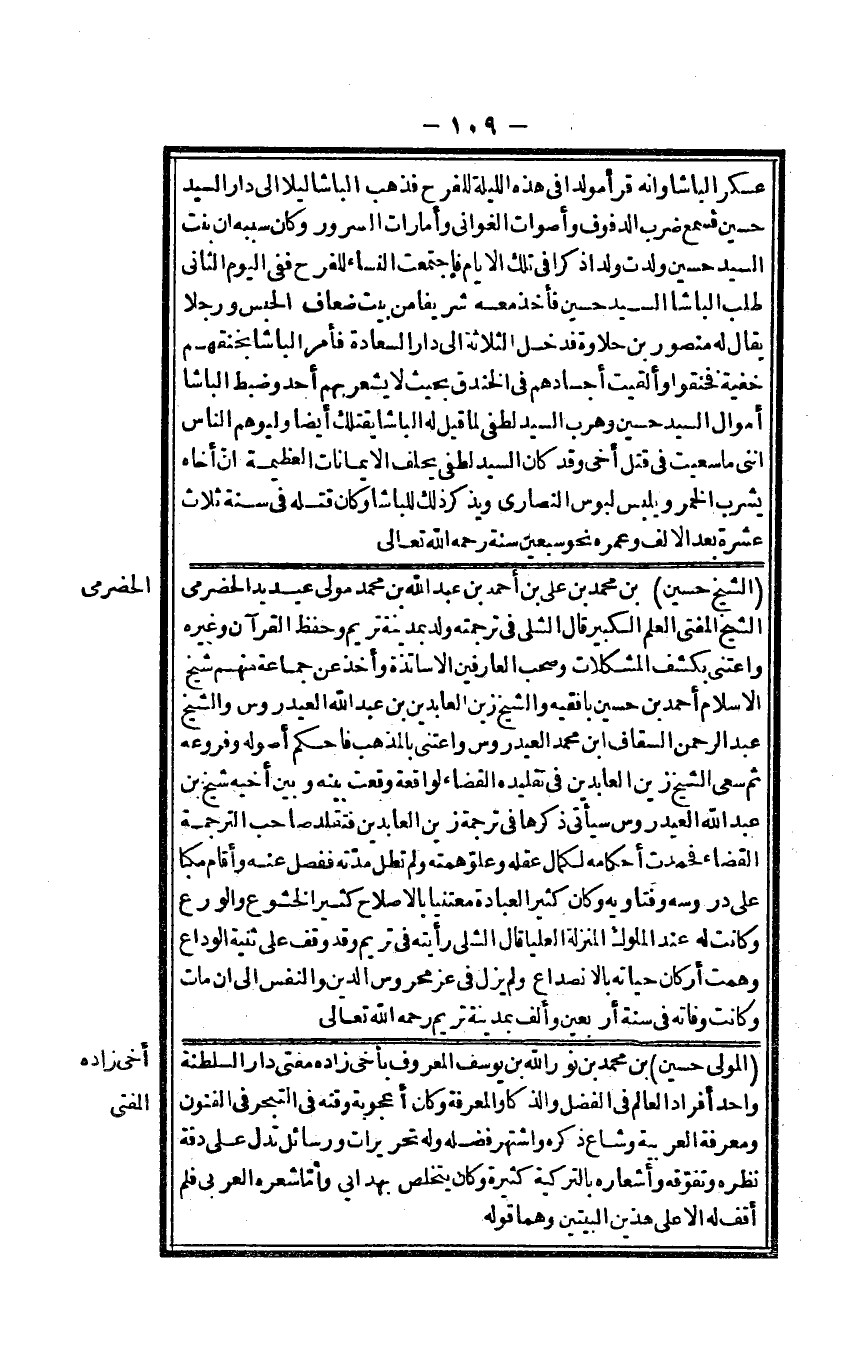 - ١٠٩ -
عسكر الباشا وانه قرأ مولدا فى هذه الليلة للفرح فذهب الباشا ليلا الى دار السيد
حسين فسمع ضرب الدفوف وأصوات الغوانى وأمارات السرور وكان سببه ان بنت
السيد حسين ولدت ولدا ذكرا فى تلك الايام فاجتمعت النساء للفرح ففى اليوم الثانى
طلب الباشا السيد حسين فأخذ معه شريفا من بيت ضعاف الحبس ورجلا
يقال له منصور بن حلاوة فدخل الثلاثة الى دار السعادة فأمر الباشا بخنقهم
خفية فخنقوا وألقيت أجسادهم فى الخندق بحيث لا يشعر بهم أحد وضبط الباشا
أموال السيد حسين وهرب السيد لطفى لما قيل له الباشا يقتلك أيضا وليوهم الناس
اننى ما سعيت فى قتل أخى وقد كان السيد لطفى يحلف الايمانات العظيمة انّ أخاه
يشرب الخمر ويلبس لبوس النصارى ويذكر ذلك للباشا وكان قتله فى سنة ثلاث
عشرة بعد الالف وعمره نحو سبعين سنة رحمه الله تعالى
(الشيخ حسين) بن محمد بن على بن أحمد بن عبد الله بن محمد مولى عيديد الحضرمى
الحضرمى
الشيخ المفتى العلم الكبير قال الشلى فى ترجمته ولد بمدينة تريم وحفظ القرآن وغيره
واعتنى بكشف المشكلات وصحب العارفين الاساتذة وأخذ عن جماعة منهم شيخ
الاسلام أحمد بن حسين بافقيه والشيخ زين العابدين بن عبد الله العيدروس والشيخ
عبد الرحمن السقاف ابن محمد العيدروس واعتنى بالمذهب فاحكم أصوله وفروعه
ثم سعى الشيخ زين العابدين فى تقليده القضاء لواقعة وقعت بينه وبين أخيه شيخ بن
عبد الله العيدروس سيأتى ذكرها فى ترجمة زين العابدين فتقلد صاحب الترجمة
القضاء فحمدت أحكامه لكمال عقله وعلوّ همته ولم تطل مدّته ففصل عنه وأقام مكبا
على دروسه وفتاويه وكان كثير العبادة معتنيا بالاصلاح كثير الخشوع والورع
وكانت له عند الملوك المنزلة العليا قال الشلى رأيته فى تريم وقد وقف على ثنية الوداع
وهمت أركان حياته بالانصداع ولم يزل فى عز محروس الدين والنفس الى ان مات
وكانت وفاته فى سنة أربعين وألف بمدينة تريم رحمه الله تعالى
(المولى حسين) بن محمد بن نور الله بن يوسف المعروف بأخى زاده مفتى دار السلطنة
أخى زاده
المفتى
واحد أفراد العالم فى الفضل والذكا والمعرفة وكان أعجوبة وقته فى التبحر فى الفنون
ومعرفة العربية وشاع ذكره واشتهر فضله وله تحريرات ورسائل تدل على دقة
نظره وتفوّقه وأشعاره بالتركية كثيرة وكان يتخلص بهدابى وأمّا شعره العربى فلم
أقف له الا على هذين البيتين وهما قوله